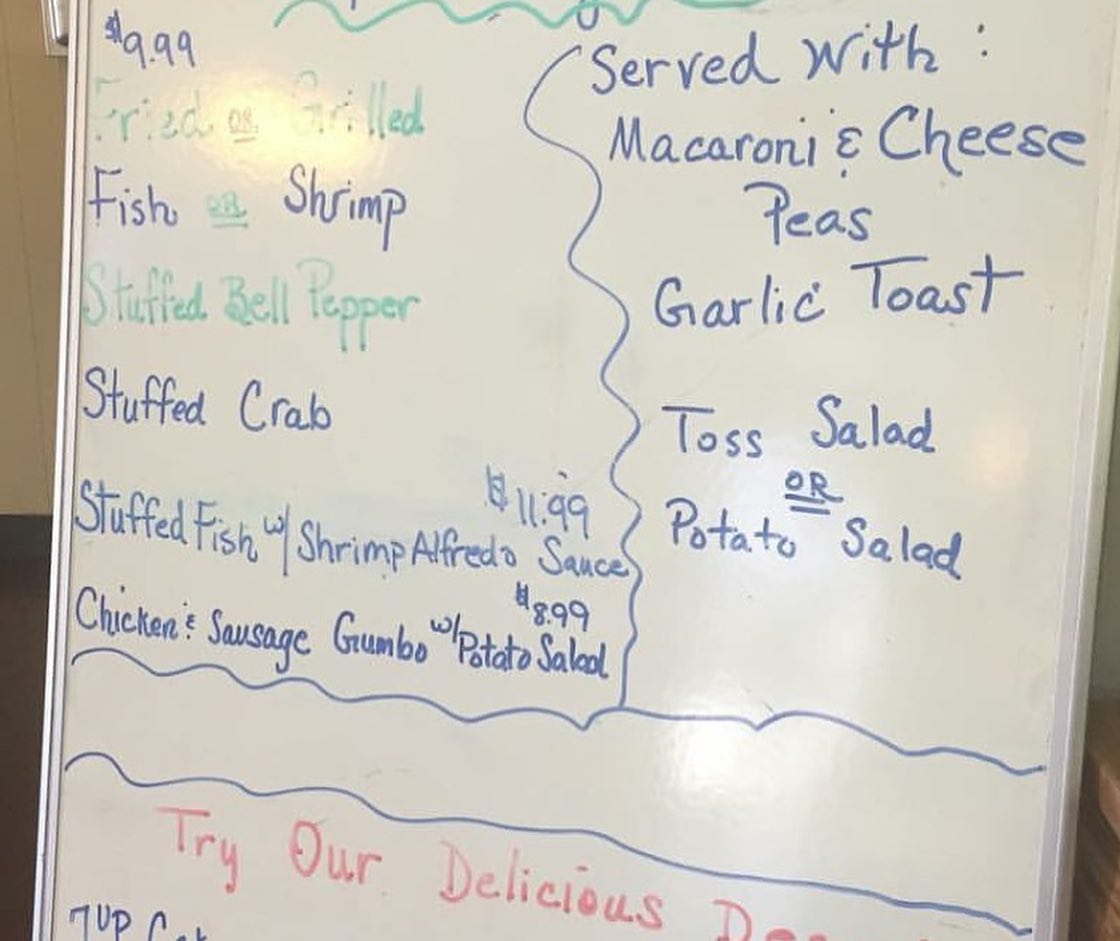 $9.99
Fried OR Grilled
Fish OR Shrimp
Stuffed Bell Pepper
Stuffed Crab
$11.99
Stuffed Fish w/ Shrimp Alfredo Sauce
$8.99
Chicken & Sausage Gumbo w/ Potato Salad
Served With :
Macaroni & Cheese
Peas
Garlic Toast
Toss Salad
OR
Potato Salad
Try Our Delicious
7UP